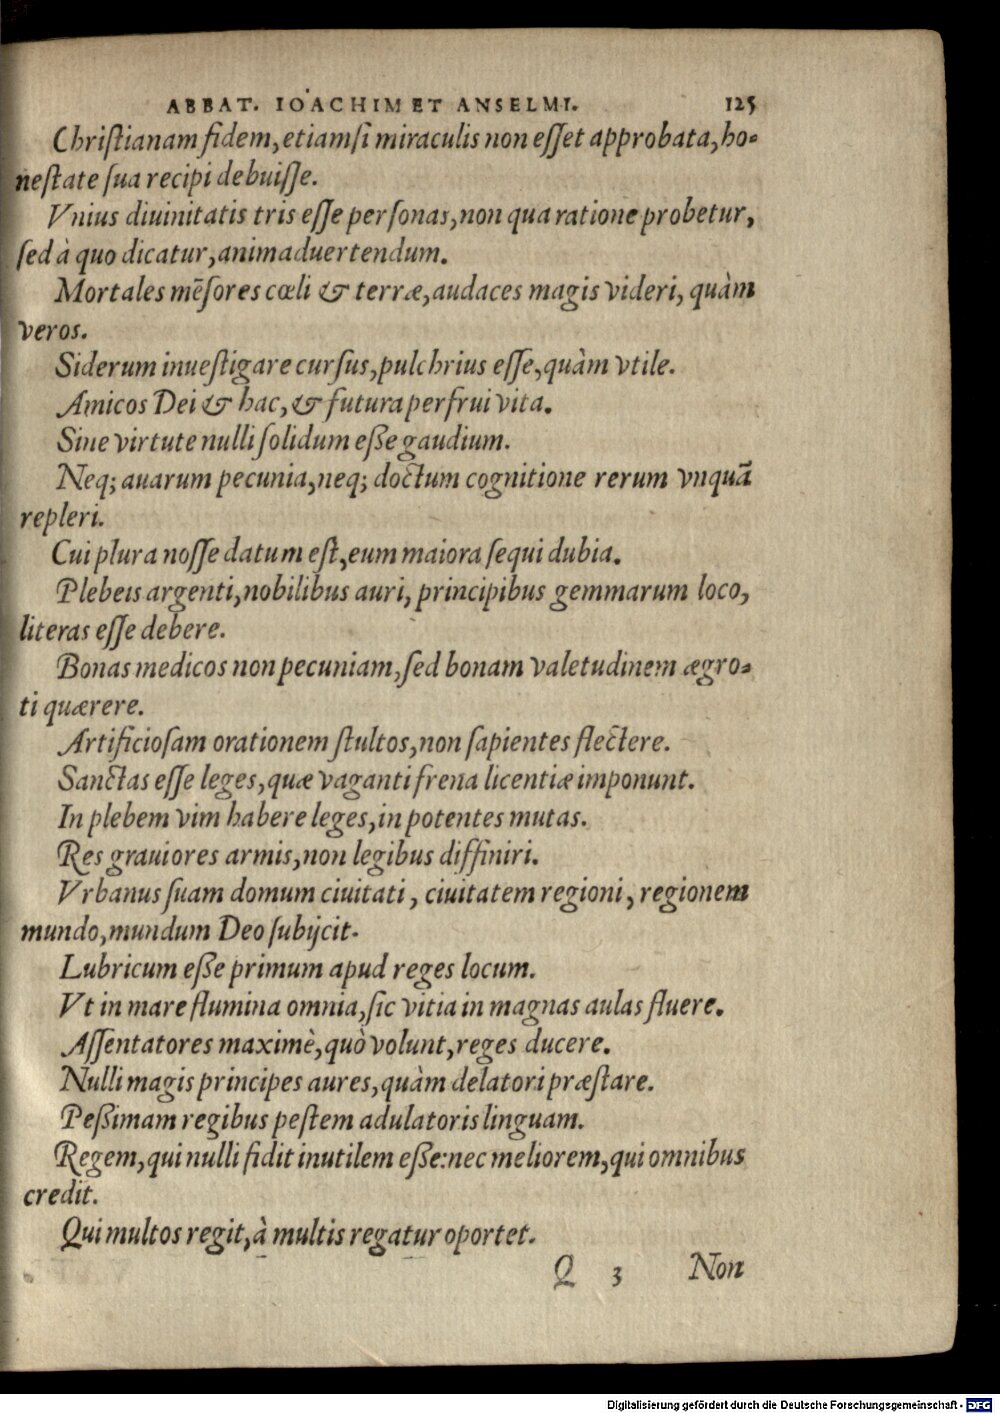 ABBAT. IOACHIM ET ANSELMI. 125
Chriſtianam fidem, etiamſi miraculis non eſſet approbata, ho-
neſtate ſua recipi debuiſſe.
Vnius diuinitatis tris eſſe perſonas, non qua ratione probetur,
ſed à quo dicatur, animaduertendum.
Mortales mēſores cœli & terræ, audaces magis videri, quàm
veros.
Siderum inueſtigare curſus, pulchrius eſſe, quàm vtile.
Amicos Dei & hac, & futura perfrui vita.
Sine virtute nulli ſolidum eße gaudium.
Neq; auarum pecunia, neq; doctum cognitione rerum vnquā
repleri.
Cui plura noſſe datum eſt, eum maiora ſequi dubia.
Plebeis argenti, nobilibus auri, principibus gemmarum loco,
literas eſſe debere.
Bonas medicos non pecuniam, ſed bonam valetudinem ægro-
ti quærere.
Artificioſam orationem ſtultos, non ſapientes flectere.
Sanctas eſſe leges, quæ vaganti frena licentiæ imponunt.
In plebem vim habere leges, in potentes mutas.
Res grauiores armis, non legibus diffiniri.
Vrbanus ſuam domum ciuitati, ciuitatem regioni, regionem
mundo, mundum Deo ſubijcit.
Lubricum eße primum apud reges locum.
Vt in mare flumina omnia, ſic vitia in magnas aulas fluere.
Aſſentatores maximè, quò volunt, reges ducere.
Nulli magis principes aures, quàm delatori præſtare.
Peßimam regibus peſtem adulatoris linguam.
Regem, qui nulli fidit inutilem eße: nec meliorem, qui omnibus
credit.
Qui multos regit, à multis regatur oportet.
Q 3 Non
Digitalisierung gefördert durch die Deutsche Forschungsgemeinschaft - DFG